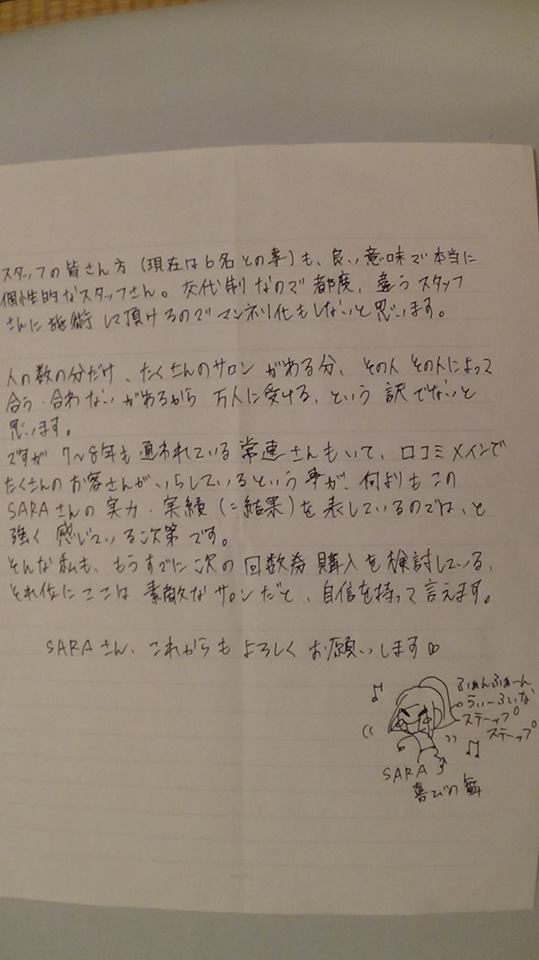 スタッフの皆さん方(現在は6名との事)も、良い意味で本当に
個性的なスタッフさん。交代制なので都度、違うスタッフ
さんに施術して頂けるのでマンネリ化もしないと思います。
人の数の分だけ、たくさんのサロンがある分、その人その人によって
合う・合わないがあるから万人に受ける、という訳でないと
思います。
ですが7~8年も通われている常連さんもいて、口コミメインで
たくさんのお客さんがいらしているという事が、何よりもこの
SARAさんの実力・実績(=結果)を表しているのでは、と
強く感じている次第です。
そんな私も、もうすでに次の回数券購入を検討している、
それ位にここは素敵なサロンだと、自信を持って言えます。
SARAさん、これからもよろしくお願いします♡
ふぁんふぁーん
うぃーふぃな
ステーップ
ステーップ
SARA
喜びの舞